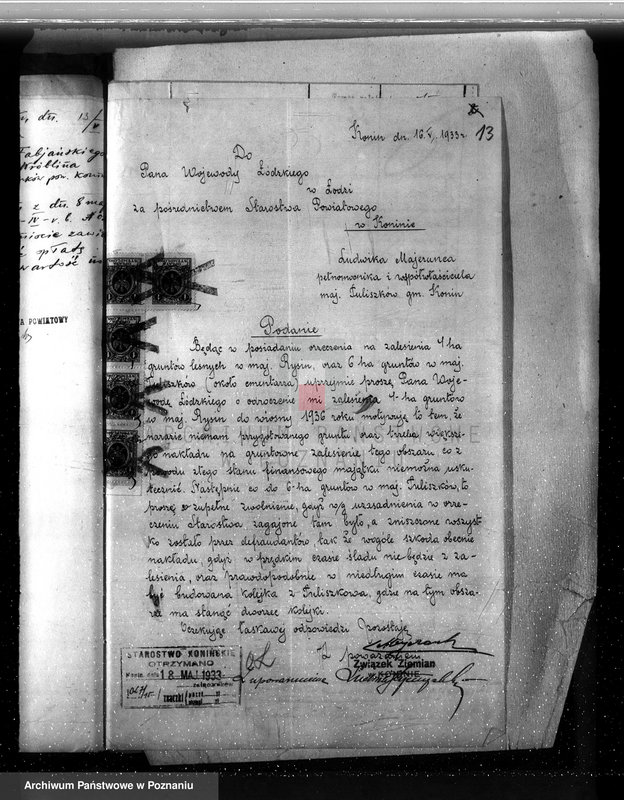 dn. 13/V
Fabjańskiego
Wróblina
pow. Konin
z dn. 8 maj
-IV- v. b. No
A POWIATOWY
Konin dn. 16.V. 1933 r.
13
Do
Pana Wojewody Łódzkiego
w Łodzi
za pośrednictwem Starostwa Powiatowego
w Koninie
Ludwika Majerunca
pełnomocnika i współwłaściciela
maj. Tuliszków gm. Konin
Podanie
Będąc w posiadaniu orzeczenia na zalesienia 4-ha
gruntów leśnych w maj. Rysin, oraz 6-ha gruntów w maj.
Tuliszków (około cmentarza) uprzejmie proszę Pana Woje-
wodę Łódzkiego o odroczenie mi zalesienia 4-ha gruntów
w maj. Rysin do wiosny 1936 roku motywuję to tem, że
narazie niemam przygotowanego gruntu oraz trzeba większe-
go nakładu na gruntowne zalesienie tego obszaru, co z
powodu złego stanu finansowego majątku niemożna usku-
tecznić. Następnie co do 6-ha gruntów w maj. Tuliszków, to
proszę o zupełne zwolnienie, gdyż w/g uzasadnienia w orze-
czeniu Starostwa zagajone tam było, a zniszczone wszyst-
ko zostało przez defraudantów, tak że wogóle szkoda obecnie
nakładu, gdyż w prędkim czasie śladu nie będzie z za-
lesienia, oraz prawdopodobnie w niedługim czasie ma
być budowana kolejka z Tuliszkowa, gdzie na tym obsza-
rze ma stanąć dworzec kolejki.
Oczekując łaskawej odpowiedzi pozostaję
z poważaniem
Związek Ziemian
w KONINIE
Z upoważnienia
STAROSTWO KONIŃSKIE
OTRZYMANO
Konin, dnia 18 MAJ 1933
załącznikami
znaczki
Archiwum Państwowe w Poznaniu